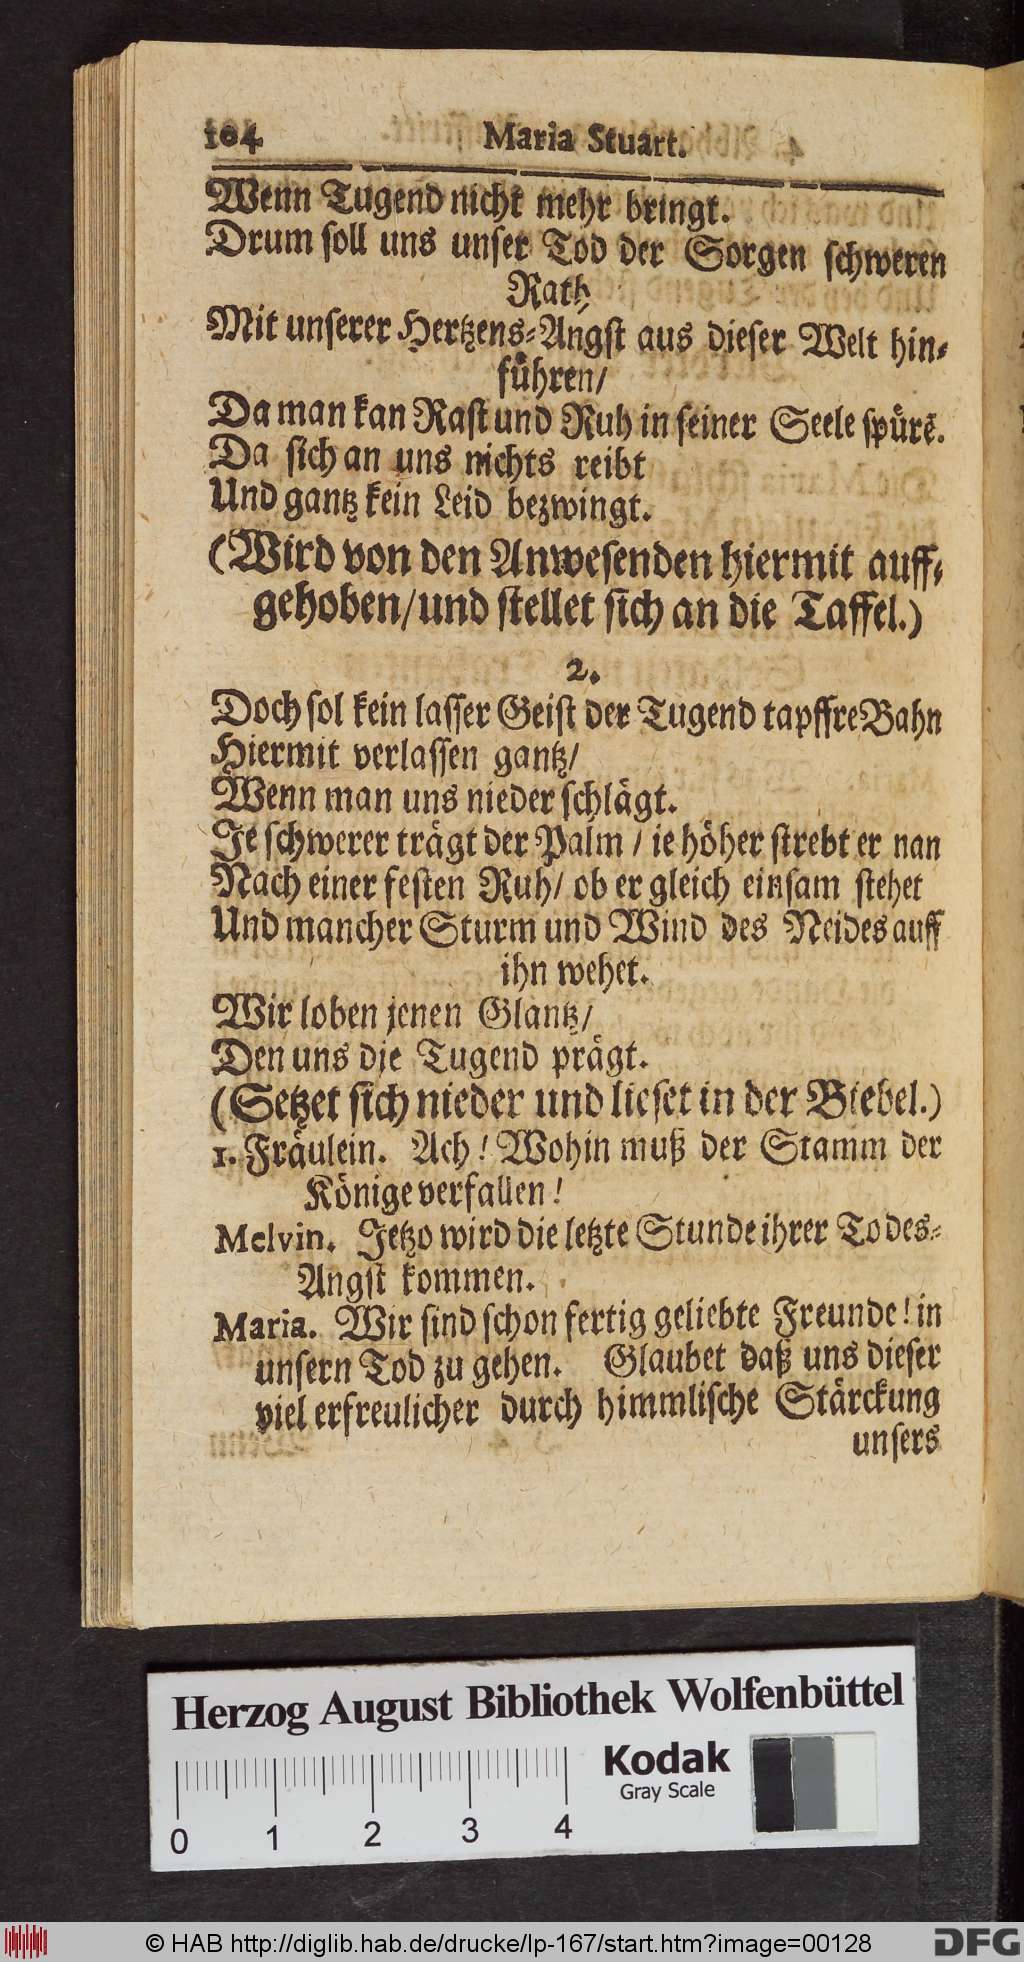 104 Maria Stuart.
Wenn Tugend nicht mehr bringt.
Drum soll uns unser Tod der Sorgen schweren
Rath,
Mit unserer Hertzens-Angst aus dieser Welt hin-
führen/
Da man kan Rast und Ruh in seiner Seele spürē.
Da sich an uns nichts reibt
Und gantz kein Leid bezwingt.
(Wird von den Anwesenden hiermit auff-
gehoben/und stellet sich an die Taffel.)
2.
Doch sol kein lasser Geist der Tugend tapffre Bahn
Hiermit verlassen gantz/
Wenn man uns nieder schlägt.
Je schwerer trägt der Palm / ie höher strebt er nan
Nach einer festen Ruh/ ob er gleich einsam stehet
Und mancher Sturm und Wind des Neides auff
ihn wehet.
Wir loben jenen Glantz/
Den uns die Tugend prägt.
(Setzet sich nieder und lieset in der Biebel.)
1. Fräulein. Ach! Wohin muß der Stamm der
Könige verfallen!
Melvin. Jetzo wird die letzte Stunde ihrer Todes-
Angst kommen.
Maria. Wir sind schon fertig geliebte Freunde! in
unsern Tod zu gehen. Glaubet daß uns dieser
viel erfreulicher durch himmlische Stärckung
unsers
Herzog August Bibliothek Wolfenbüttel
Kodak
Gray Scale
0 1 2 3 4
© HAB http://diglib.hab.de/drucke/lp-167/start.htm?image=00128
DFG